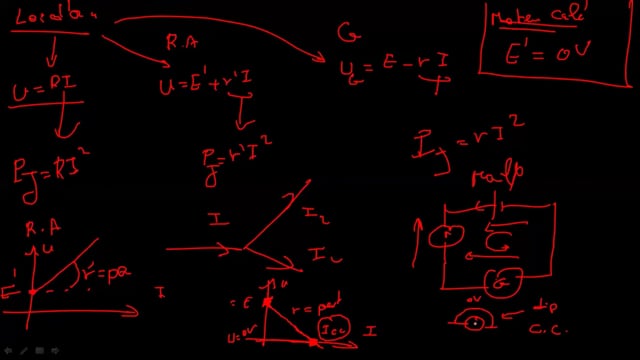 Loi d'
R.A
G
Moteur calé
E' = 0V
U = RI
U = E' + r'I
U_G = E - rI
P_J = RI²
P_J = r'I²
P_J = rI²
R.A
U
E'
r' = pe
I
I
I₂
I₁
U
= E
r = pent
U = 0V
Icc
I
G
0V
dip
C.C.